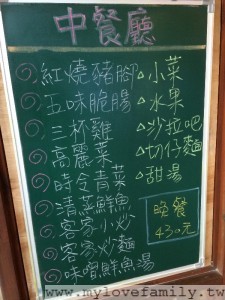 中餐廳
紅燒豬腳
五味脆腸
三杯雞
高麗菜
時令青菜
清蒸鮮魚
客家小炒
客家炒麵
味噌鮮魚湯
△小菜
△水果
△沙拉吧
△切仔麵
△甜湯
晚餐
430元
www.mylovefamily.tw